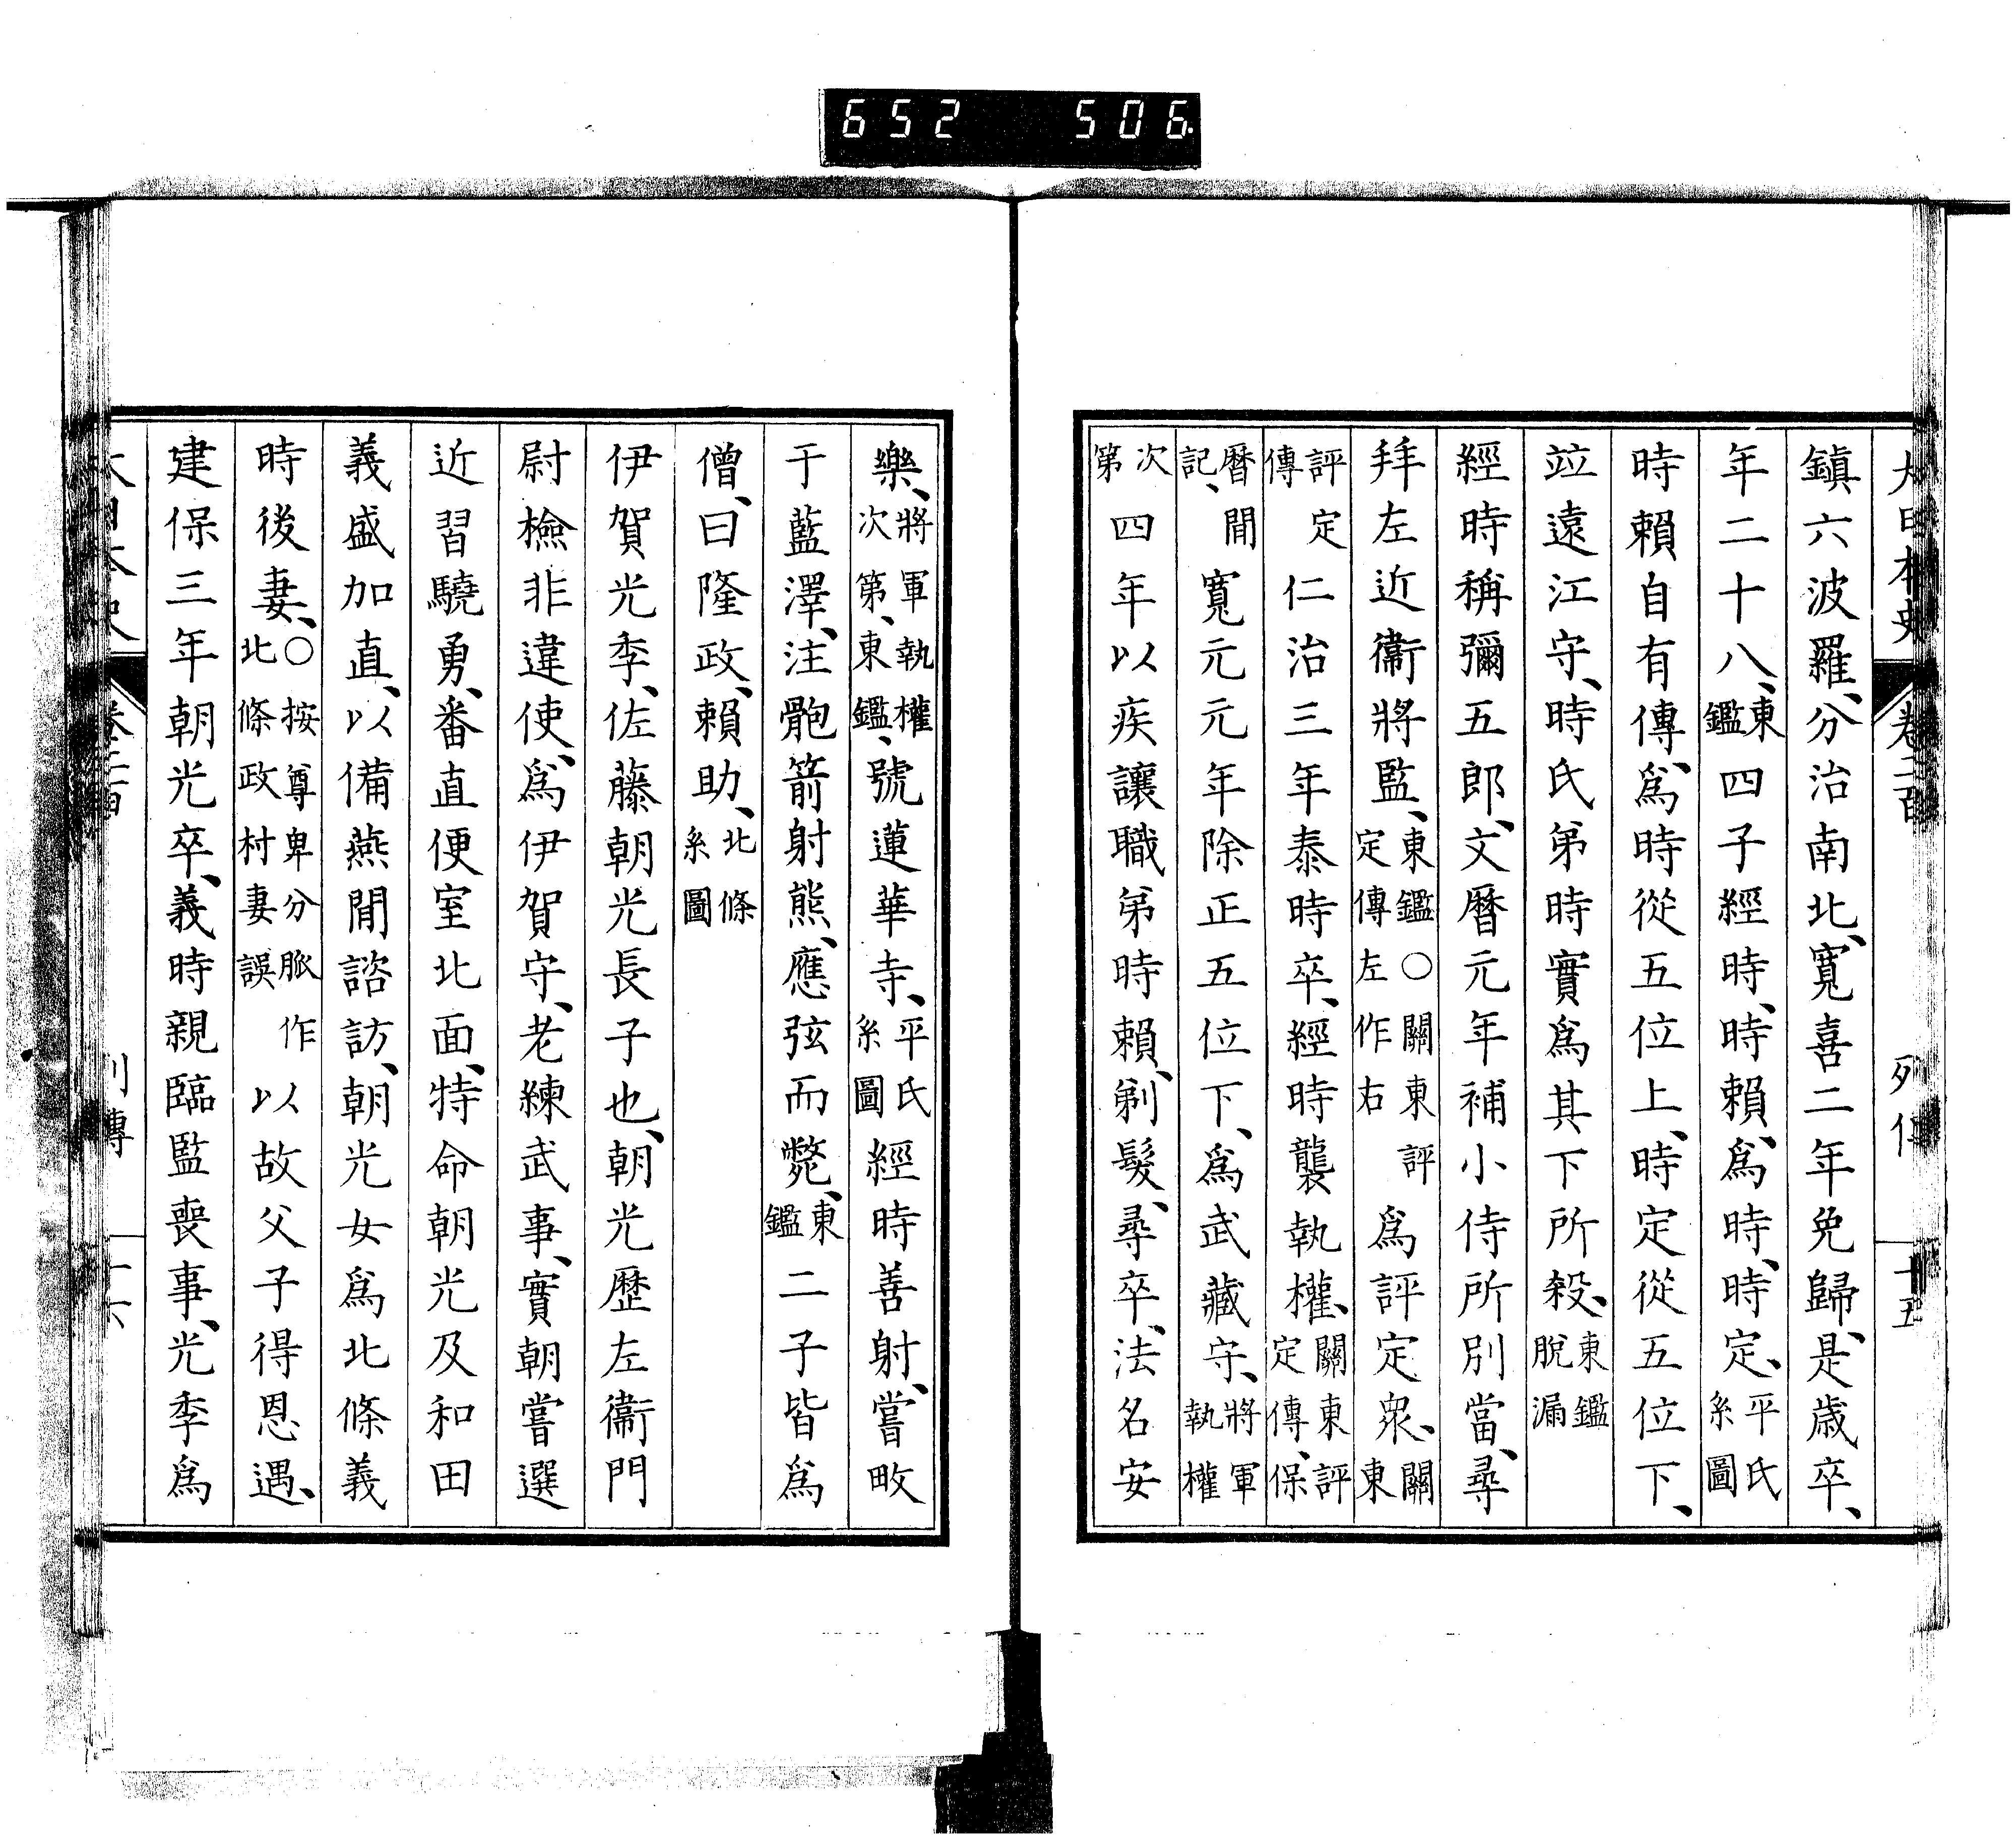 652 506
大日本史 卷二百 列傳 十五
鎭六波羅、分治南北、寬喜二年免歸、是歳卒、
年二十八、東鑑四子經時、時賴、爲時、時定、平氏系圖
時賴自有傳、爲時從五位上、時定從五位下、
竝遠江守、時氏弟時實爲其下所殺、東鑑脫漏
經時稱彌五郎、文曆元年補小侍所別當、尋
拜左近衞將監、東鑑○關東評定傳左作右爲評定衆、關東
評定傳仁治三年泰時卒、經時襲執權、關東評定傳、保
曆間記、寬元元年除正五位下、爲武藏守、將軍執權
次第四年以疾讓職弟時賴、剃髮、尋卒、法名安
樂、將軍執權次第、東鑑、號蓮華寺、平氏系圖經時善射、嘗畋
于藍澤、注骲箭射熊、應弦而斃、東鑑二子皆爲
僧、曰隆政、賴助、北條系圖
伊賀光季、佐藤朝光長子也、朝光歷左衞門
尉檢非違使、爲伊賀守、老練武事、實朝嘗選
近習驍勇、番直便室北面、特命朝光及和田
義盛加直、以備燕閒諮訪、朝光女爲北條義
時後妻、○按尊卑分脈作北條政村妻誤以故父子得恩遇、
建保三年朝光卒、義時親臨監喪事、光季爲
列傳